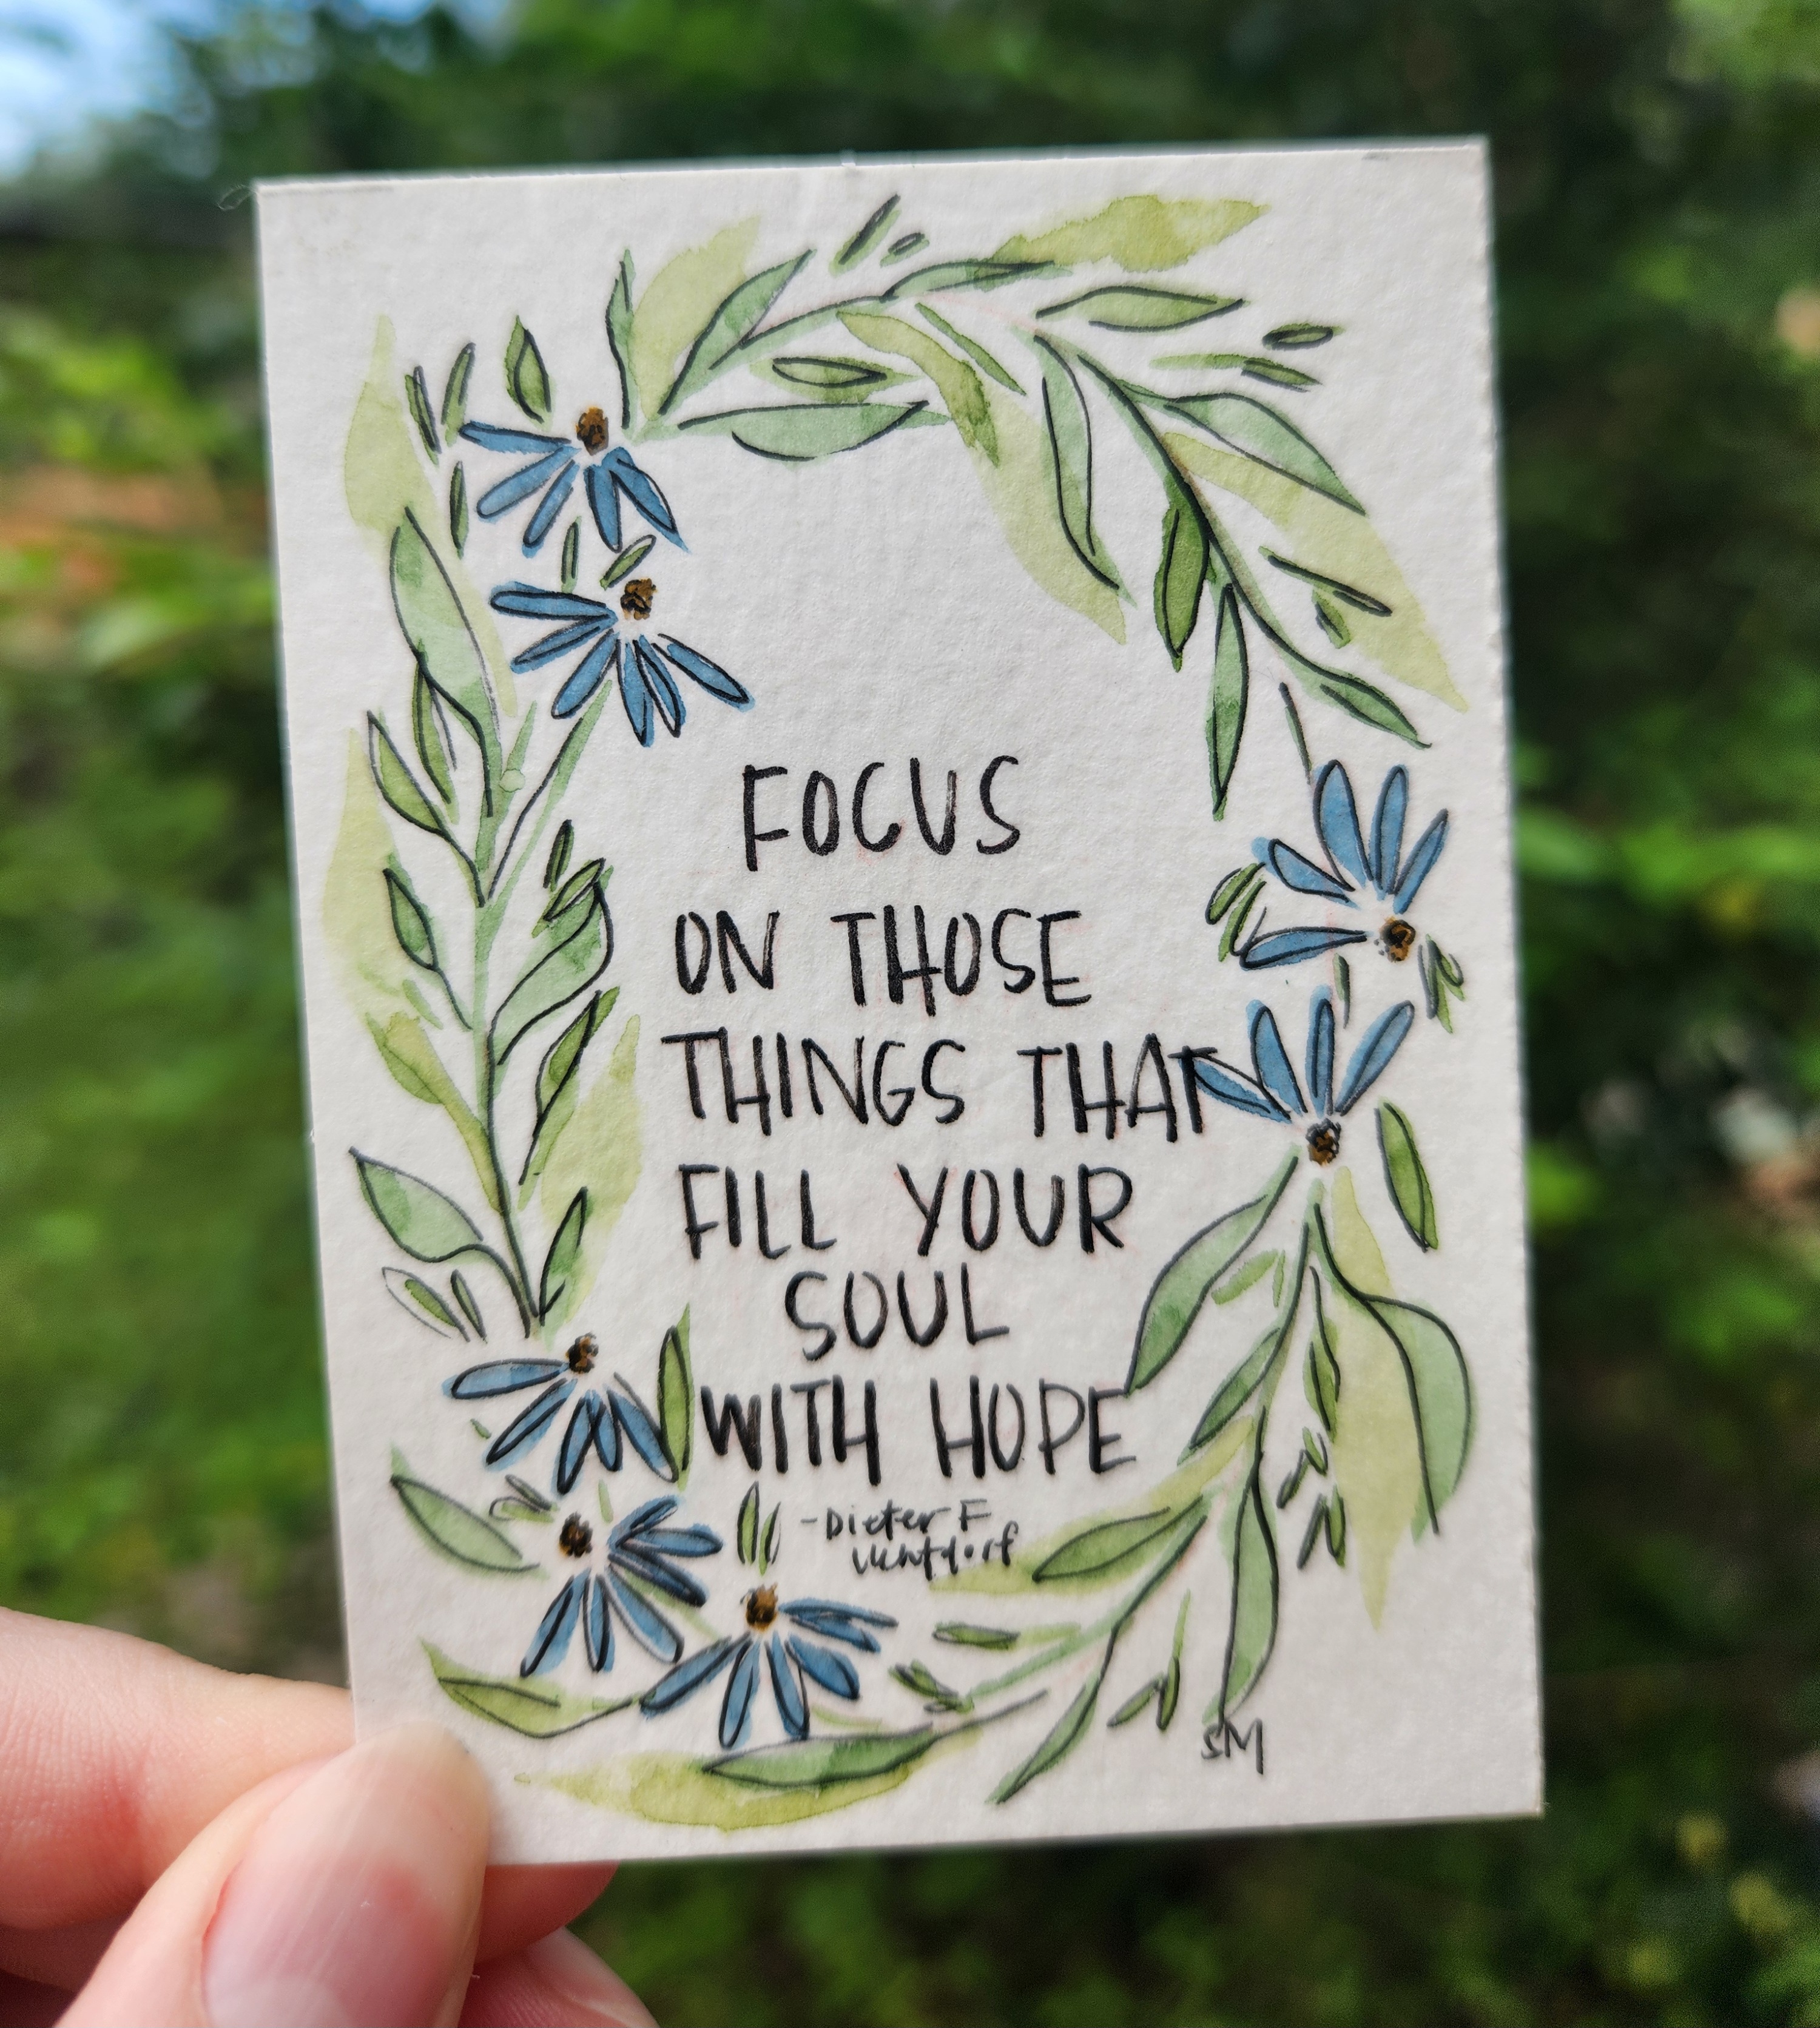 FOCUS
ON THOSE
THINGS THAT
FILL YOUR
SOUL
WITH HOPE
-Dieter F
Uchtdorf
SM